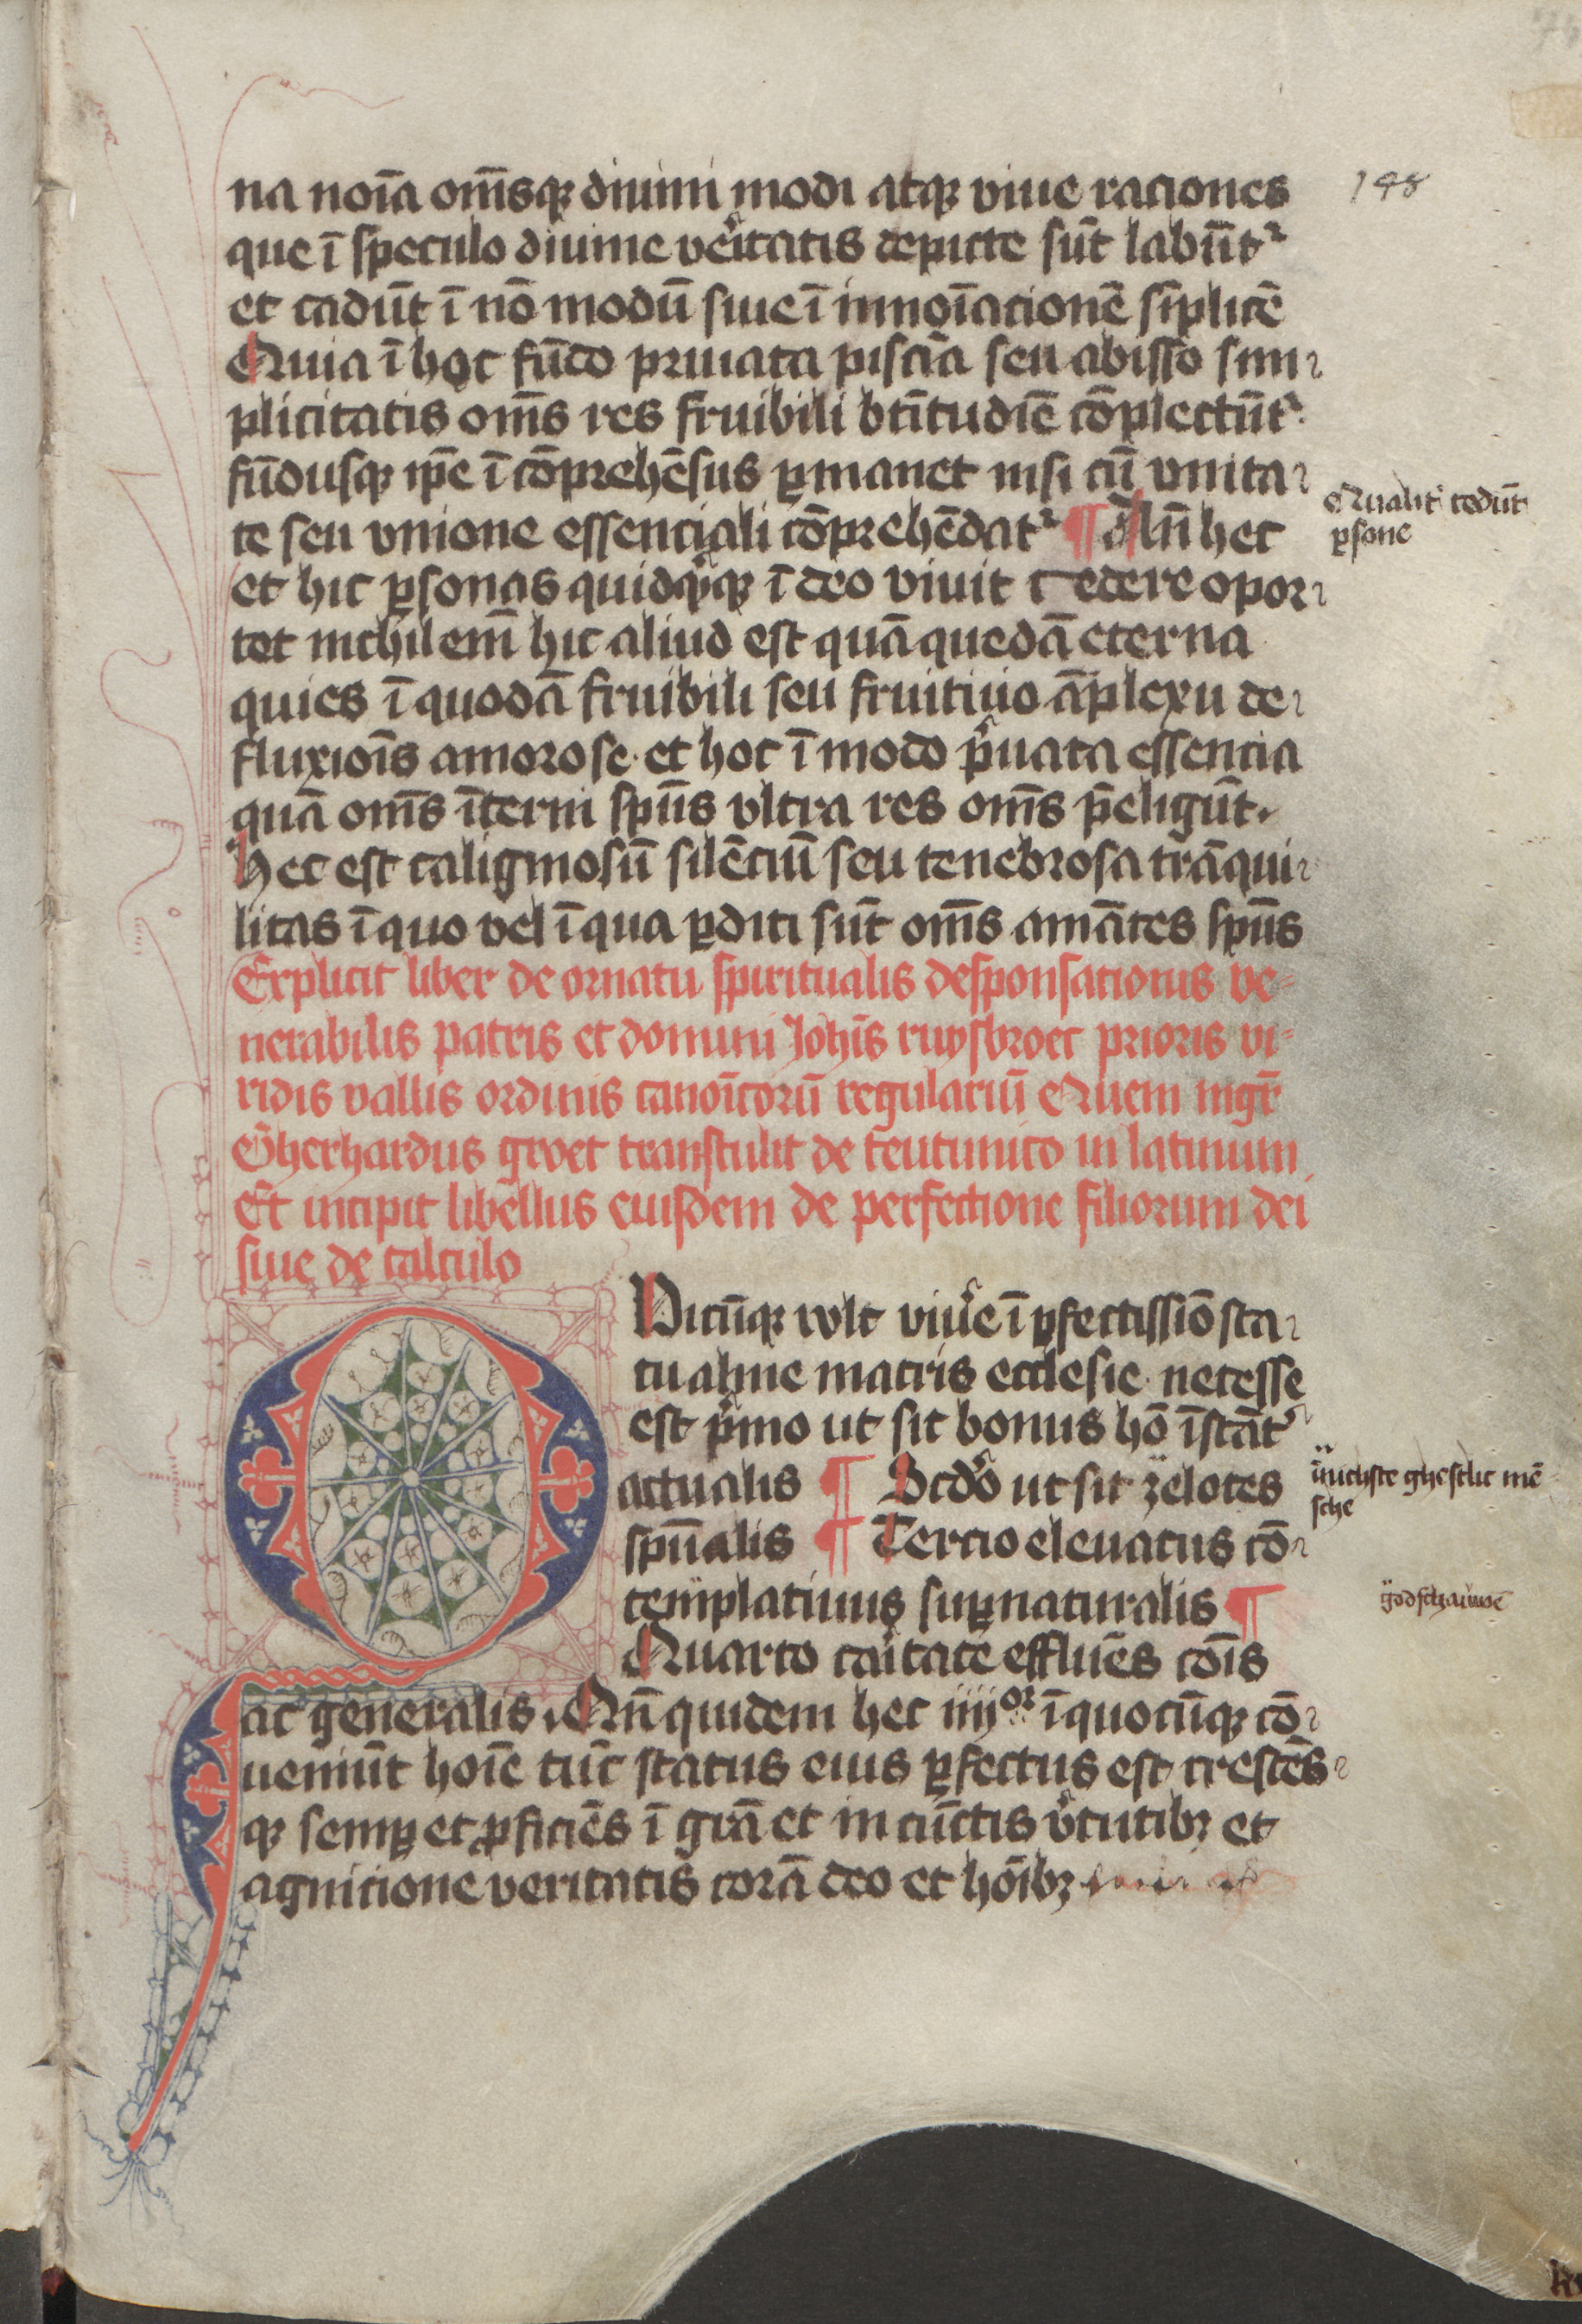 na noīa om̄sqꝫ diuini modi atqꝫ viue raciones
148
que ī speculo diuine veritatis depicte sūt labūtr
et cadūt ī nō modū siue ī innoīacionē sīplicē
Quia ī hoc fūdo priuata pisciā seu abisso sim
plicitatis om̄s res fruibili btītudiē cōplectūtr
fūdusqꝫ ip̄e ī cōprehēsus ꝑmanet nisi cū vnita
te seu vnione essenciali cōprehēdatr ¶ hec
Qualitr cedūt
ꝑsone
et hic ꝑsonas quidqͥqꝫ ī deo viuit cedere opor
tet nichil em̄ hic aliud est quā quedā eterna
quies ī quodā fruibili seu fruitiuo āplexu de
fluxiōis amorose et hoc ī modo pͥuata essencia
quā om̄s īterni sp̄us vltra res om̄s p̄eligūt
hec est caliginosū silēciū seu tenebrosa trāqui
litas ī quo vel ī qua ꝑditi sūt om̄s amātes sp̄us
Explicit liber de ornatu spiritualis desponsationis ve
nerabilis patris et domini Joh̄is ruysbroec prioris vi
ridis vallis ordinis canoīcorū regulariū Quem mgr̄
Gherhardus groet transtulit de teutunico in latinum
Et incipit libellus euisdem de perfectione filiorum dei
siue de calculo
Qicūqꝫ wlt viue͛ ī ꝑfectissiō sta
tu alme matris ecclesie necesse
est pͥmo ut sit bonus hō īstātr
actualis ¶ Scdō ut sit zelotes
īnichste ghestlic mē
sche
sp̄ualis ¶ Tercio eleuatus cō
templatiuus suꝑnaturalis ¶
godschauwē
Quarto caritate effluēs cōis
ac generalis. Qn̄ quidem hec iiijor ī quocūqꝫ cō
ueniūt hoīe tūc status eius ꝑfectus est crescēs
qꝫ semꝑ et ꝓficiēs ī grā et in cūctis vͥtutibꝫ et
agnicione veritatis corā deo et hōibꝫ